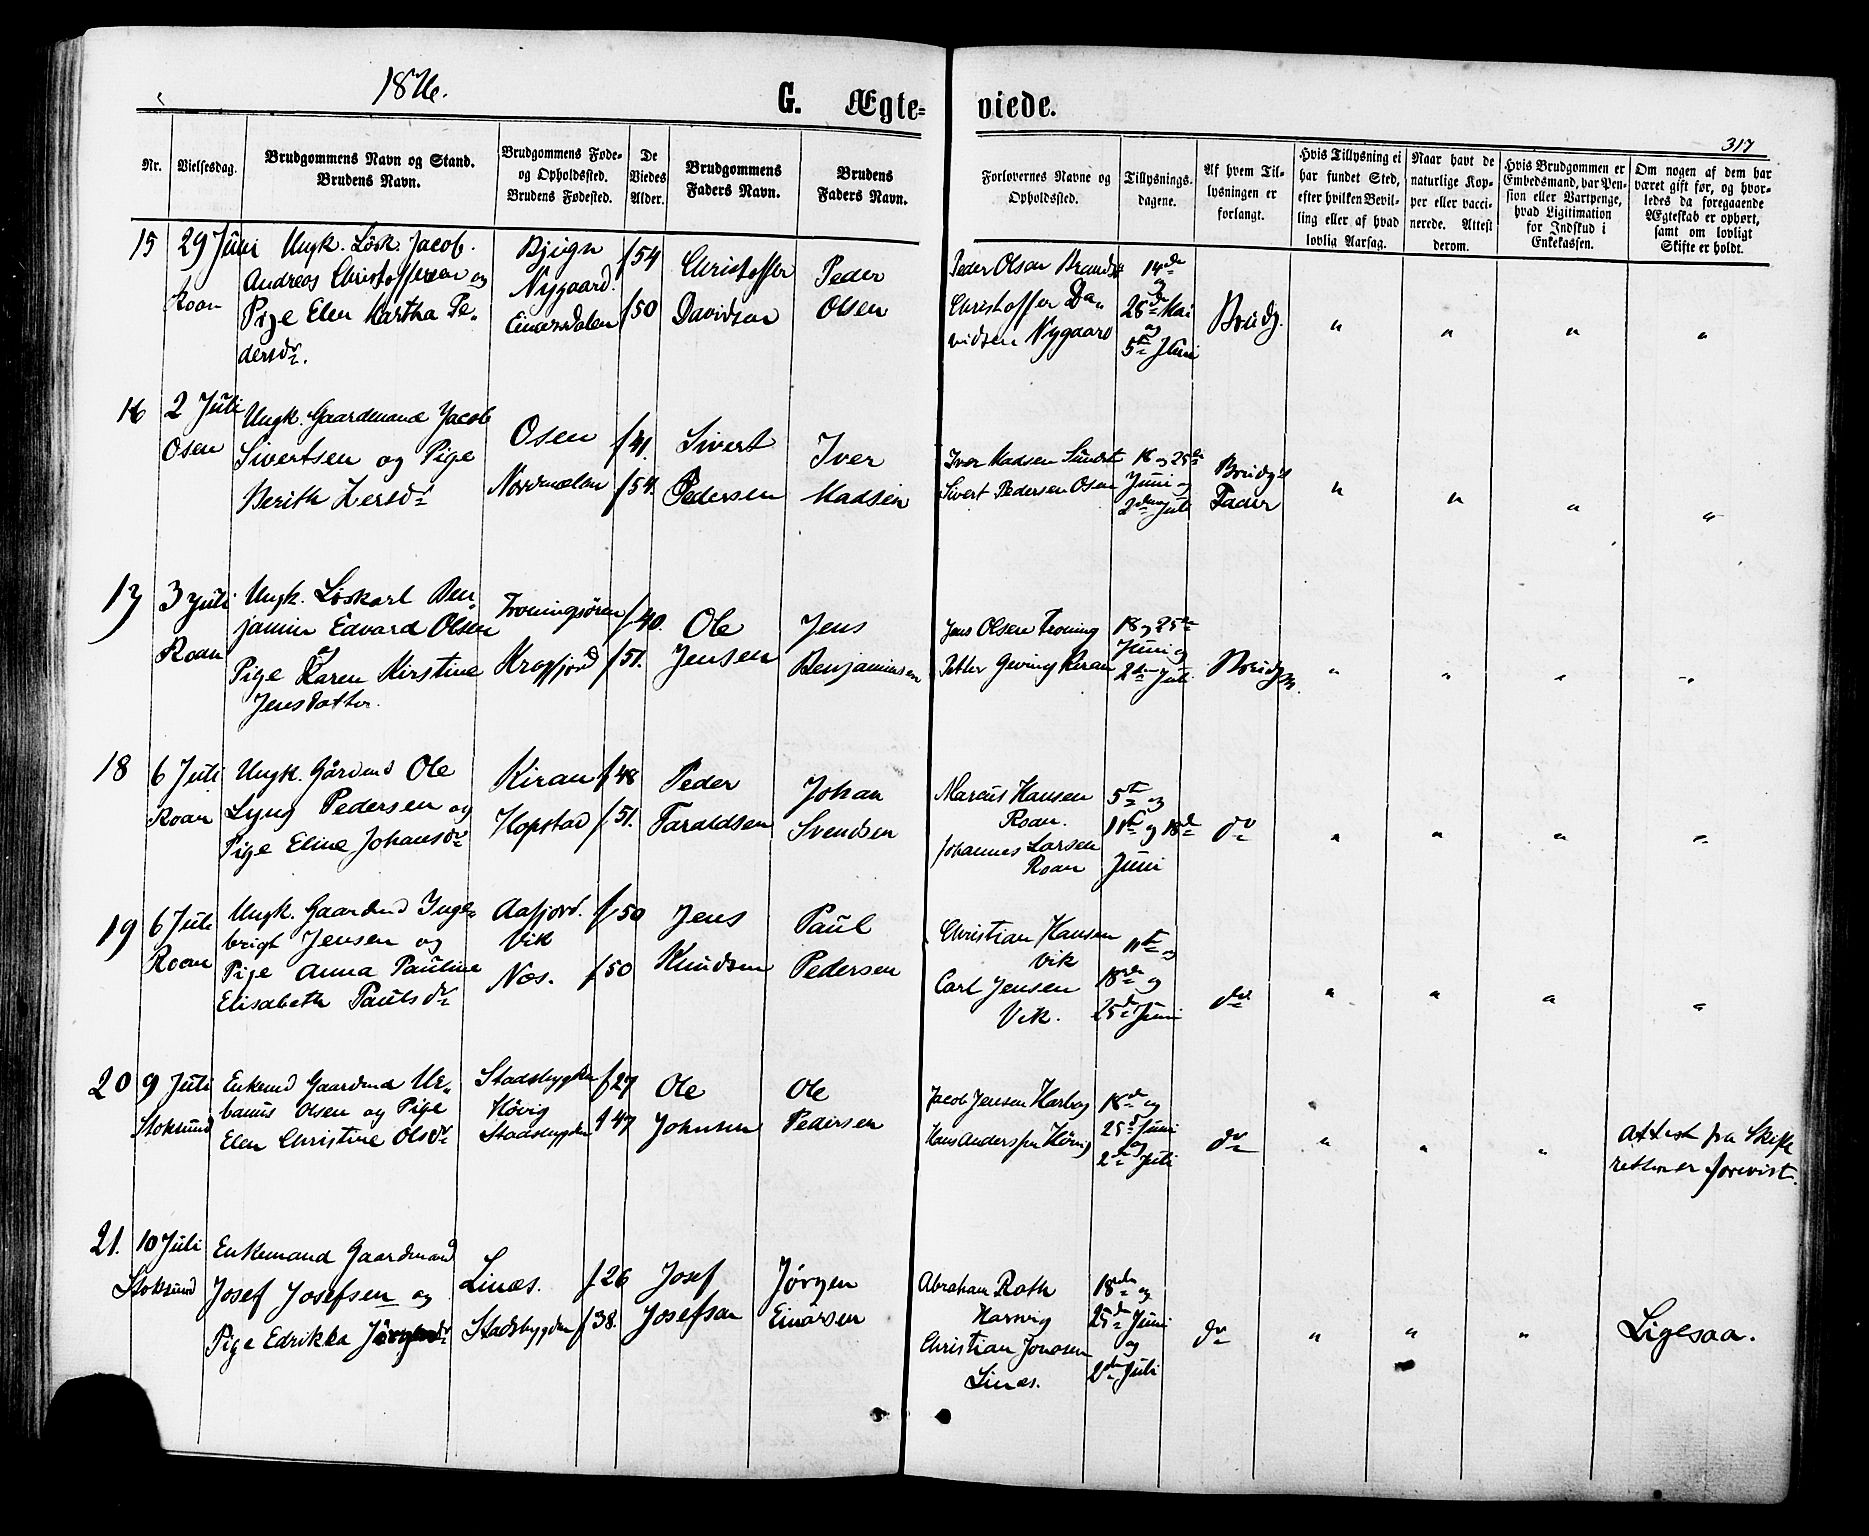 1876.
G. Ægte= viede.
317
Nr.
Vielsesdag.
Brudgommens Navn og Stand.
Brudens Navn.
Brudgommens Føde-
og Opholdssted.
Brudens Fødested.
De
Viedes
Alder.
Brudgommens
Faders Navn.
Brudens
Faders Navn.
Forlovernes Navne og
Opholdssted.
Tillysnings-
dagene.
Af hvem Til-
lysningen er
forlangt.
Hvis Tillysning ei
har fundet Sted,
efter hvilken Bevil-
ling eller af hvad
lovlig Aarsag.
Naar havt de
naturlige Kop-
per eller vacci-
nerede. Attest
derom.
Hvis Brudgommen er
Embedsmand, har Pen-
sion eller Vartpenge,
hvad Ligitimation
for Indskud i
Enkekassen.
Om nogen af dem har
været gift før, og hvor-
ledes da foregaaende
Ægteskab er ophørt,
samt om lovligt
Skifte er holdt.
15
29 Juni
Roan
Ungk. Løsk. Jacob
Andreas Christoffersen og
Pige Elen Martha Pe-
dersdr.
Bjugn
Nygaard.
Einarsdalen
f 54
f 50
Christoffer
Davidsen
Peder
Olsen
Peder Olsen
Christoffer Da-
vidsen Nygaard
14de
og
28de Mai
og
5te Juni
Brudg.
"
"
"
"
16
2 Juli
Osen
Ungk. Gaardmand Jacob
Sivertsen og Pige
Berith
Osen
Nordmælan
f 41.
f 54.
Sivert
Pedersen
Iver
Madsen
Iver Madsen
Sivert Pedersen Osen
18 og 25de
Juni og
2den Juli
Brudg's
Fader
"
"
"
"
17
3 Juli
Roan
Ungk. Løskarl Ben-
jamin Edvard Olsen
og
Pige Karen Kirstine
Jensdatter.
Troningsøren
Kragfjord
f 40.
f 51.
Ole
Jensen
Jens
Benjaminsen
Jens Olsen Troning
Petter Geving Kiran
18 og 25de
Juni og
2den Juli
Brudgm.
"
"
"
"
18
6 Juli
Roan
Ungk. Gårdmd Ole
Lyng Pedersen og
Pige Eline Johansdr
Kiran
Hopstad
f 48
f 51.
Peder
Taraldsen
Johan
Svendsen
Marcus Hansen
Roan.
Johannes Larsen
Roan
5te og
11te og 18de
Juni
do
"
"
"
"
19
6 Juli
Roan
Ungk. Gaardmd Inge-
brigt Jensen og
Pige Anna Pauline
Elisabeth Paulsdr
Aafjord.
Vik
Næs.
f 50
f 50
Jens
Knudsen
Paul
Pedersen
Christian Hansen
Vik
Carl Jensen
Vik.
11te og
18de og
25de Juni
do
"
"
"
"
20
9 Juli
Stoksund
Enkemd Gaardmd Ur-
banus Olsen og Pige
Elen Christine Olsdr
Stadsbygden
Høvig
Stadsbygden
f 27
f 47
Ole
Johnsen
Ole
Pedersen
Jacob Jensen Harbag
Hans Anderssen Høvig
18de og
25de Juni
og
2den Juli
do
"
"
"
Attest fra Skifte
retten er forevist.
21.
10 Juli
Stoksund
Enkemand Gaardmand
Josef Josefsen og
Pige Edrikka Jørgensdr
Linæs.
Stadsbygden
f 26
f 38.
Josef
Josefsen
Jørgen
Einarsen
Abraham Rath
Harvig
Christian Jonasen
Linæs.
18de og
25de Juni
og
2den Juli
do
"
"
"
Ligesaa.